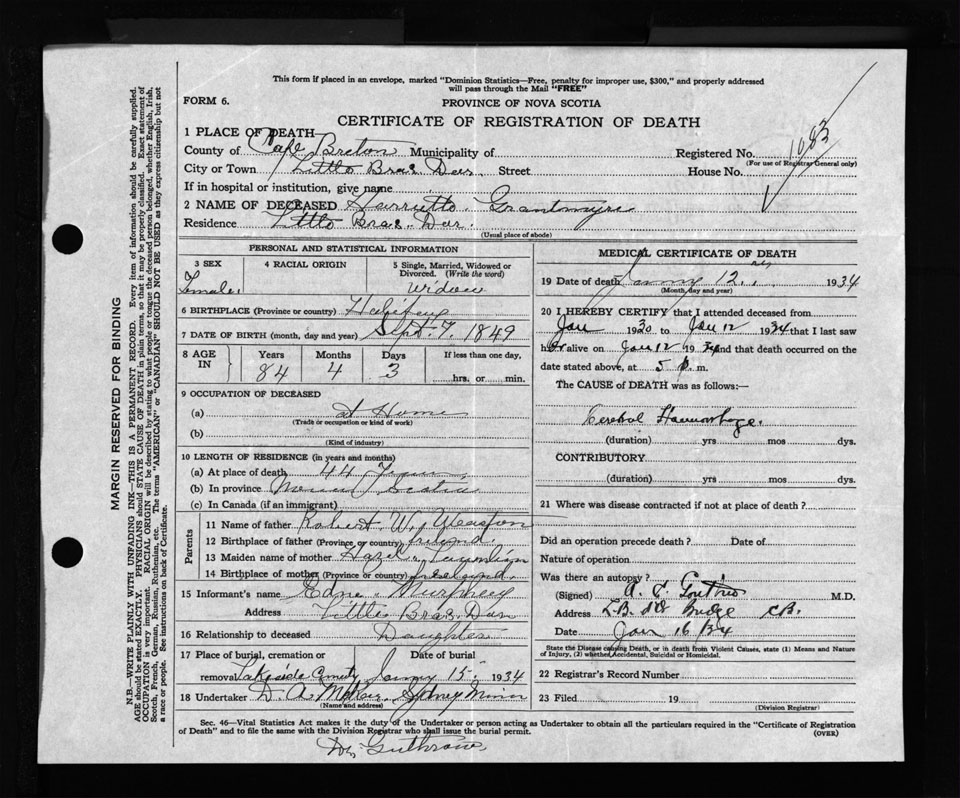 This form if placed in an envelope, marked "Dominion Statistics—Free, penalty for improper use, $300," and properly addressed
will pass through the Mail "FREE"
FORM 6.
PROVINCE OF NOVA SCOTIA
CERTIFICATE OF REGISTRATION OF DEATH
1083
1 PLACE OF DEATH
County of Cape Breton Municipality of Registered No.
(For use of Registrar General only)
City or Town Little Bras Dor Street House No.
If in hospital or institution, give name
2 NAME OF DECEASED Harriette Grantmyre
Residence Little Bras Dor
(Usual place of abode)
PERSONAL AND STATISTICAL INFORMATION
3 SEX 4 RACIAL ORIGIN 5 Single, Married, Widowed or
Divorced. (Write the word)
Female widow
6 BIRTHPLACE (Province or country) Halifax
7 DATE OF BIRTH (month, day and year) Sept. 7, 1849
8 AGE IN Years Months Days If less than one day,
84 4 3 hrs. or min.
9 OCCUPATION OF DECEASED
(a) at Home
(Trade or occupation or kind of work)
(b)
(Kind of industry)
10 LENGTH OF RESIDENCE (in years and months)
(a) At place of death 44 Years
(b) In province Nova Scotia
(c) In Canada (if an immigrant)
Parents
11 Name of father Robert W.
12 Birthplace of father (Province or country)
13 Maiden name of mother Hazel
14 Birthplace of mother (Province or country)
15 Informant's name Edne Murphey
Address Little Bras Dor
16 Relationship to deceased Daughter
17 Place of burial, cremation or Date of burial
removal Lakeside 15 1934
18 Undertaker D. A. Sydney Mines
(Name and address)
MEDICAL CERTIFICATE OF DEATH
19 Date of death 12 1934
(Month, day and year)
20 I HEREBY CERTIFY that I attended deceased from
Jan 1930 to Jan 12 1934 that I last saw
her alive on Jan 12 1934 and that death occurred on the
date stated above, at 5 m.
The CAUSE of DEATH was as follows:—
Cerebal Haemorhage.
(duration) yrs mos dys.
CONTRIBUTORY
(duration) yrs mos dys.
21 Where was disease contracted if not at place of death?
Did an operation precede death? Date of
Nature of operation
Was there an autopsy?
(Signed) M.D.
Address Bridge C.B.
Date Jan 16/34
State the Disease causing Death, or in death from Violent Causes, state (1) Means and Nature
of Injury, (2) whether Accidental, Suicidal or Homicidal.
22 Registrar's Record Number
23 Filed 19
(Division Registrar)
Sec. 46—Vital Statistics Act makes it the duty of the Undertaker or person acting as Undertaker to obtain all the particulars required in the "Certificate of Registration
of Death" and to file the same with the Division Registrar who shall issue the burial permit.
(OVER)
MARGIN RESERVED FOR BINDING
N.B.—WRITE PLAINLY WITH UNFADING INK—THIS IS A PERMANENT RECORD. Every item of information should be carefully supplied.
AGE should be stated EXACTLY. PHYSICIANS should STATE CAUSE OF DEATH in plain terms, so that it may be properly classified. Exact statement of
OCCUPATION is very important. RACIAL ORIGIN will be described by stating to what people or tongue the deceased person belonged, whether English, Irish,
Scotch, French, German, Russian, Ruthenian, etc. The terms "AMERICAN" or "CANADIAN" SHOULD NOT BE USED as they express citizenship but not
a race or people. See instructions on back of Certificate.